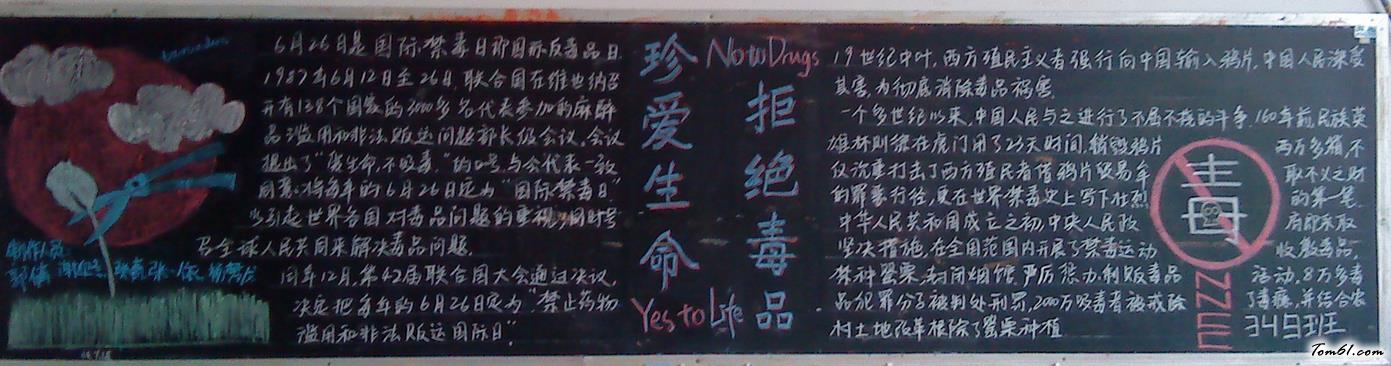 6月26日是国际禁毒日即国际反毒品日.
1987年6月12日至26日,联合国在维也纳召
开有138个国家的3000多名代表参加的麻醉
品滥用和非法贩运问题部长级会议,会议
提出了"爱生命,不吸毒"的口号,与会代表一致
同意,将每年的6月26日定为"国际禁毒日"
以引起世界各国对毒品问题的重视,同时号
召全球人民共同来解决毒品问题.
同年12月,第42届联合国大会通过决议,
决定把每年的6月26日定为"禁止药物
滥用和非法贩运国际日"
制作人员
珍爱生命
Yes to Life
No to Drugs
拒绝毒品
19世纪中叶,西方殖民主义者强行向中国输入鸦片,中国人民深受
其害,为彻底消除毒品祸害,
一个多世纪以来,中国人民与之进行了不屈不挠的斗争,160年前,民族英
雄林则徐在虎门用了23天时间,销毁鸦片 两万多箱,不
仅沉重打击了西方殖民者借鸦片贸易牟 取不义之财
的罪恶行径,更在世界禁毒史上写下壮烈 的第一笔.
中华人民共和国成立之初,中央人民政 府即采取
坚决措施,在全国范围内开展了禁毒运动 收缴毒品,
禁种罂粟,封闭烟馆,严厉惩办制贩毒品 活动,8万多毒
品犯罪分子被判处刑罚,2000万吸毒者被戒除 了毒瘾,并结合农
村土地改革根除了罂粟种植
毒
349班
Tom61.com